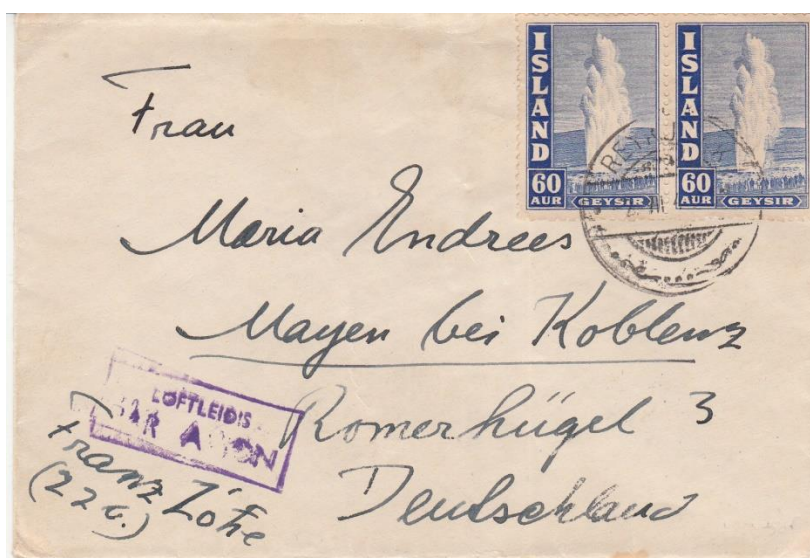 ISLAND
60
AUR
GEYSIR
ISLAND
60
AUR
GEYSIR
Frau
Maria Endrees
Mayen bei Koblenz
Romerhügel 3
Deutschland
LOFTLEIDIS
PAR AVION
Franz. Zone